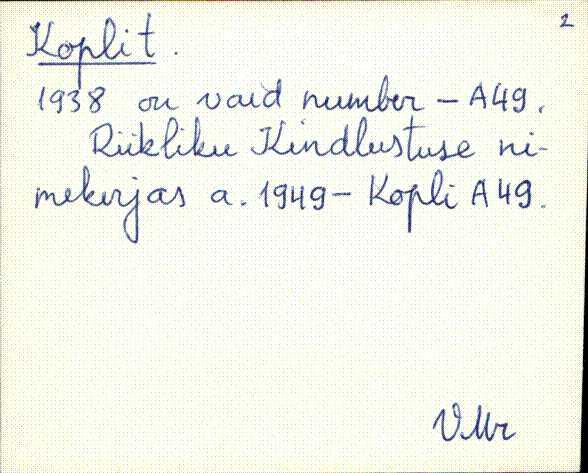 2
Koplit.
1938 on vaid number – A49.
Riikliku Kindlustuse ni-
mekirjas a. 1949 – Kopli A49.
VMr